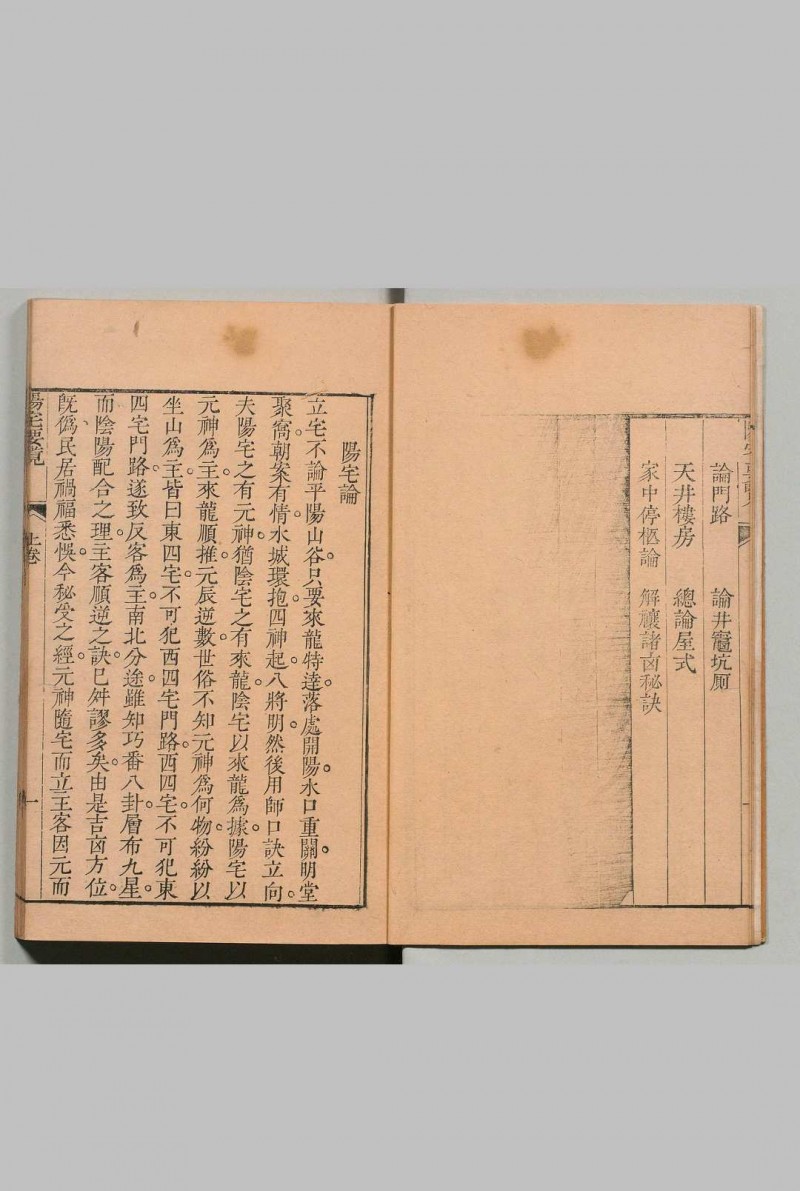 論門路　論井竈坑厠
天井樓房　總論屋式
家中停柩論　解禳諸凶秘訣
陽宅論
立宅不論平陽山谷。只要來龍特達。落處開陽。水口重關。明堂
聚窩。朝案有情。水城環抱。四神起。八將明。然後用師口訣立向。
夫陽宅之有元神。猶陰宅之有來龍。陰宅以來龍爲據。陽宅以
元神爲主。來龍順推。元辰逆數。世俗不知元神爲何物。紛紛以
坐山爲主。皆曰東四宅。不可犯西四宅門路。西四宅。不可犯東
四宅門路。遂致反客爲主。南北分途。雖知巧番八卦。層布九星。
而陰陽配合之理。主客順逆之訣。已舛謬多矣。由是吉凶方位。
旣僞。民居禍福悉悞。今秘受之經。元神隨宅而立。主客因元而
陽宅要覽
上卷
一